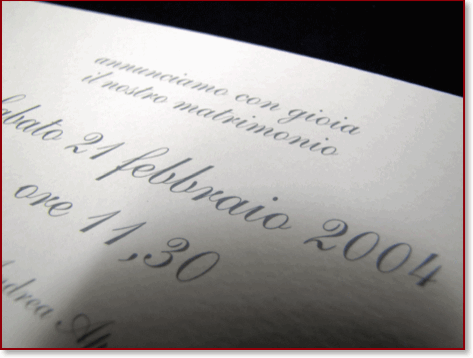 annunciamo con gioia
il nostro matrimonio
sabato 21 febbraio 2004
ore 11,30